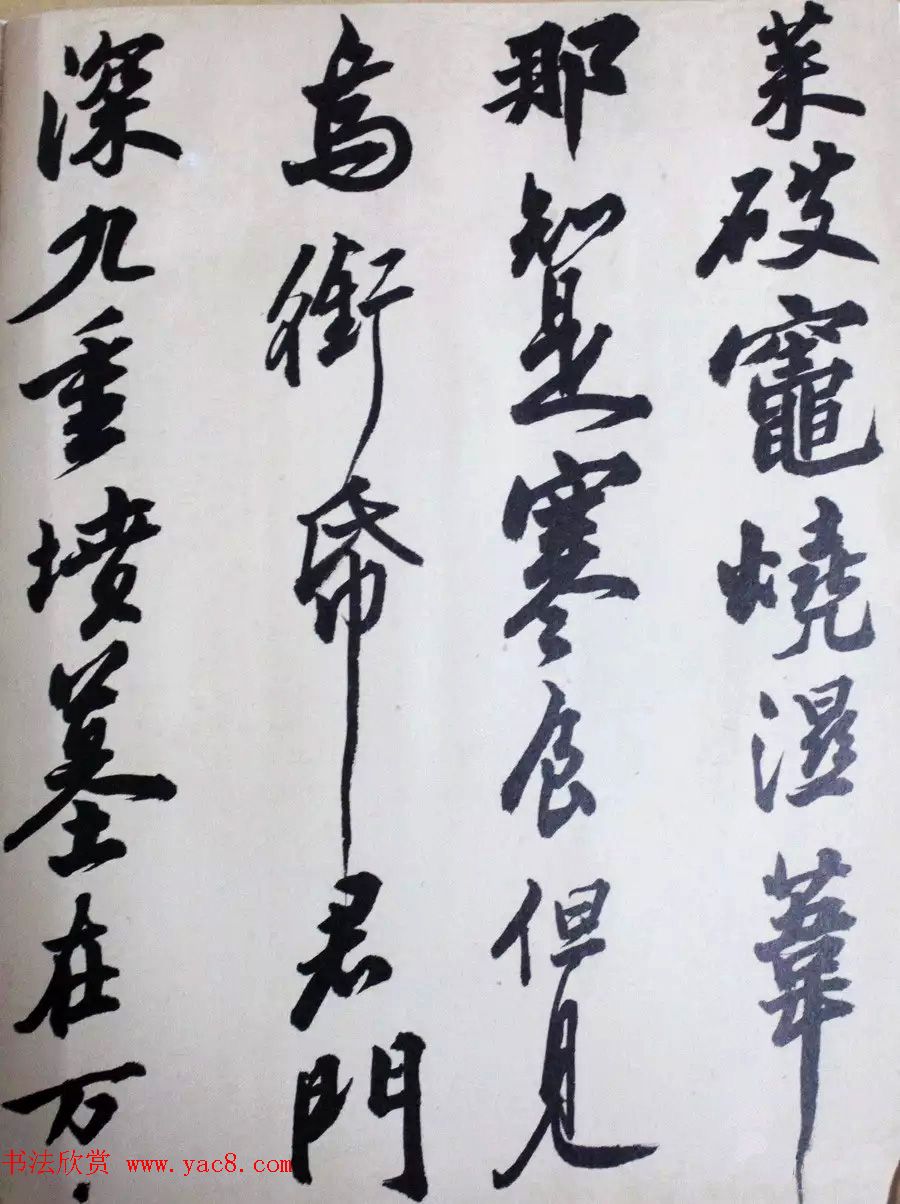 菜破竈燒濕葦
那知是寒食但見
烏銜帋君門
深九重墳墓在万
书法欣赏 www.yac8.com